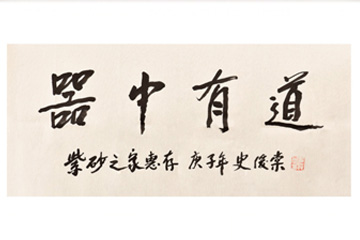 器中有道
紫砂之家惠存 庚子年 史俊棠